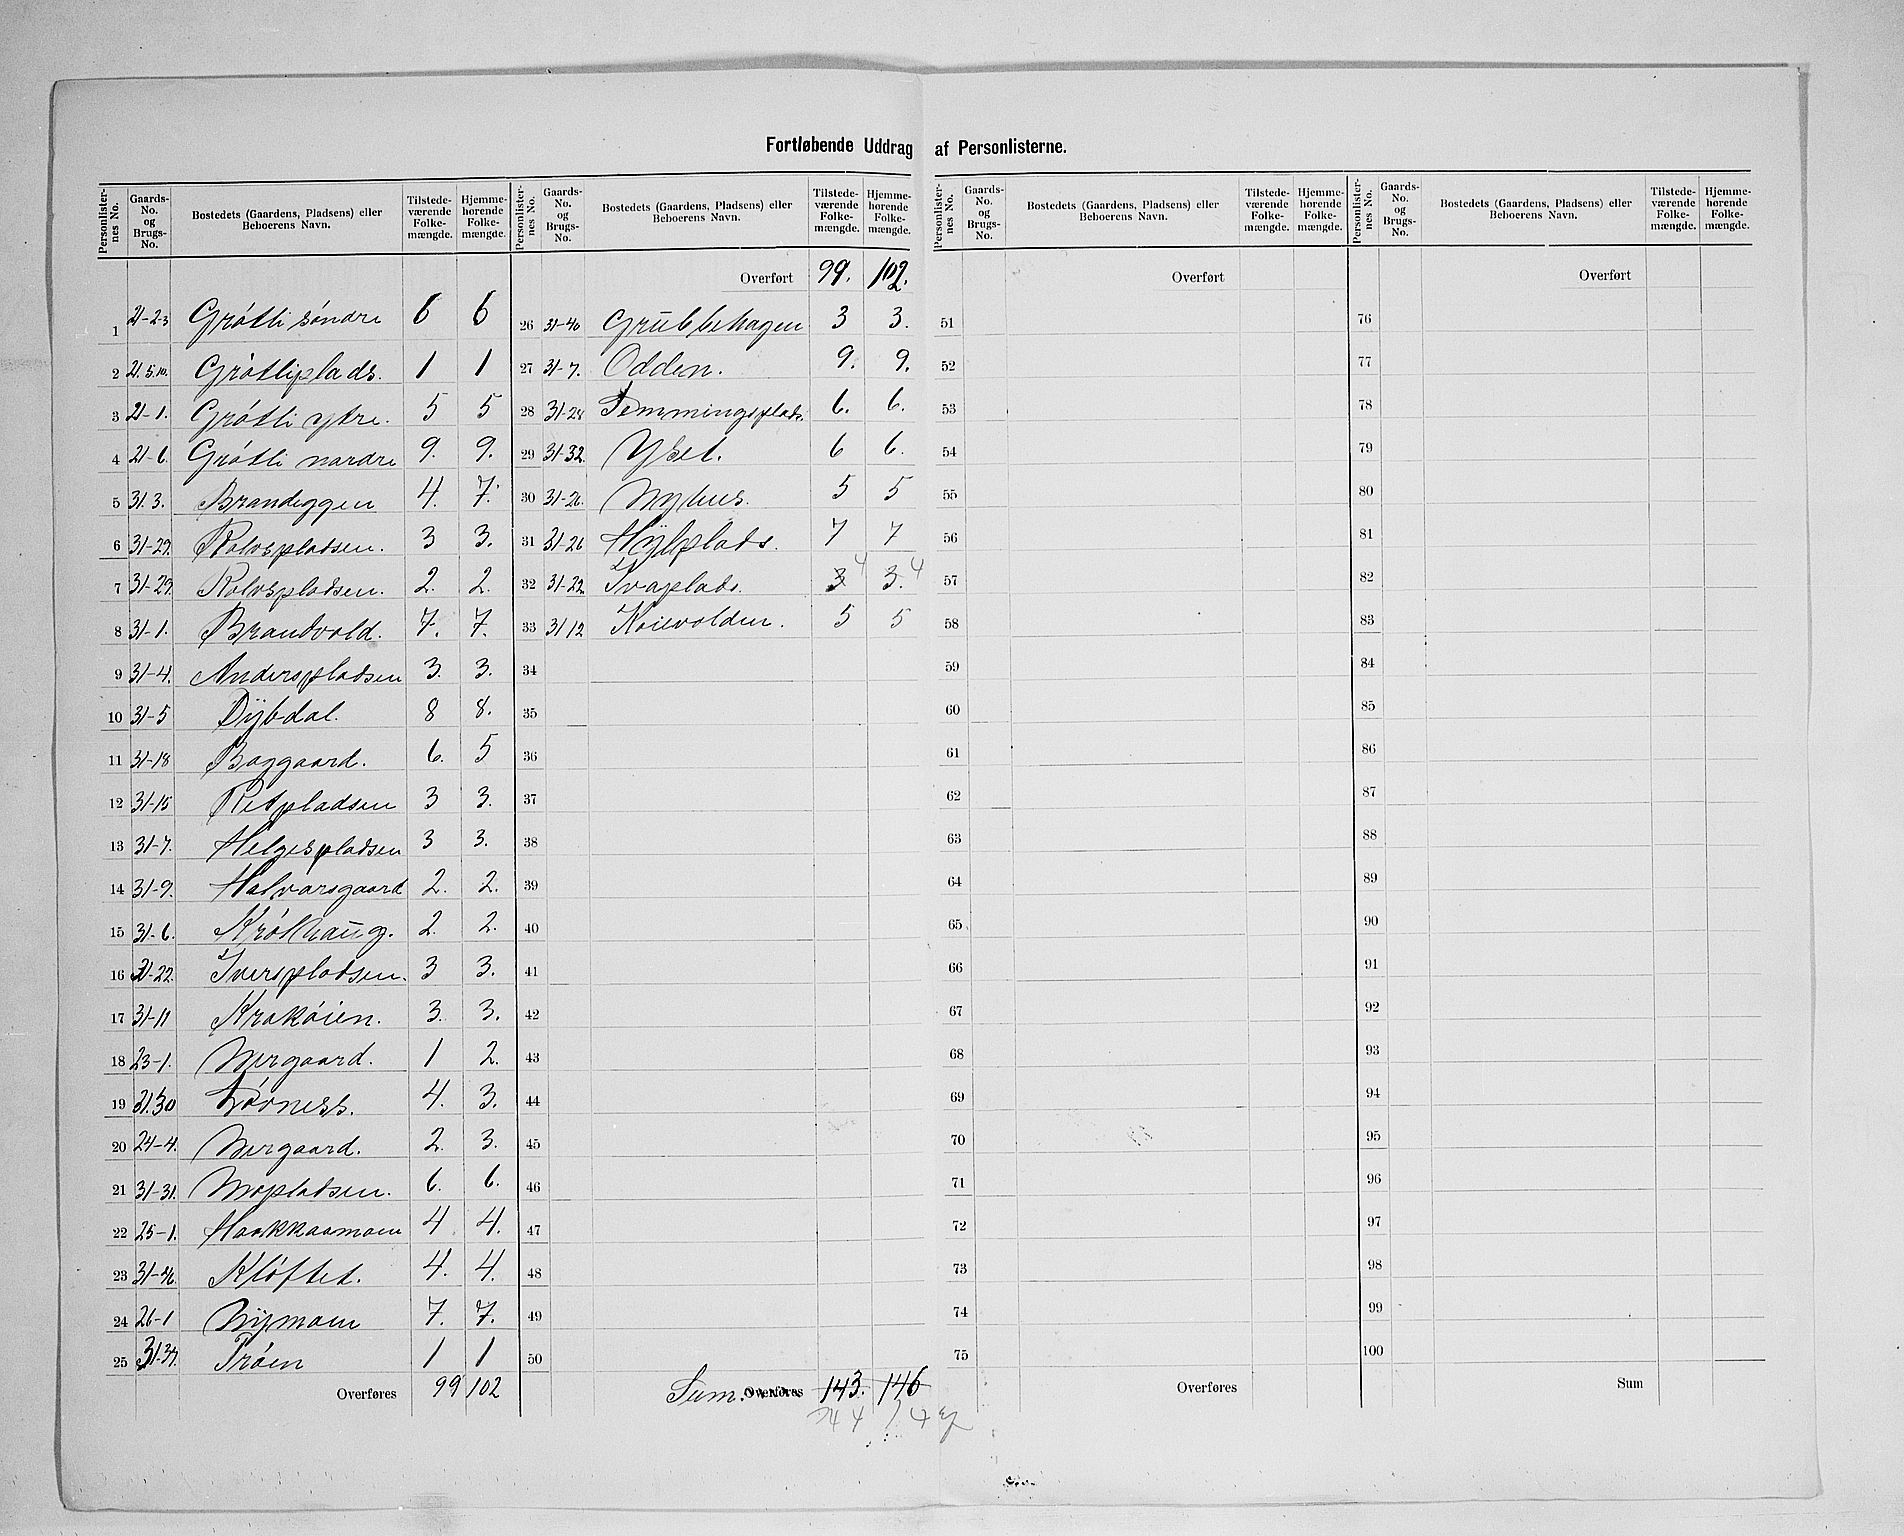 Fortløbende Uddrag af Personlisterne.
Personlister-nes No. | Gaards-No. og Brugs-No. | Bostedets (Gaardens, Pladsens) eller Beboerens Navn. | Tilstede-værende Folke-mængde. | Hjemme-hørende Folke-mængde.
1 21-2-3 Gròtli sóndre 6 6
2 21.5.10. Gròtliplads. 1 1
3 21-1. Gròtli ytre. 5 5
4 21-6. Gròtli nordre 9. 9.
5 31.3. Brandeggen 4. 7.
6 31-29. Rolvspladsen. 3 3.
7 31-29. Rolvspladsen. 2. 2.
8 31-1. Brandvold. 7. 7.
9 31-4. Anderspladsen 3. 3.
10 31-5 Dÿbdal. 8 8.
11 31-18 Baggaard. 6. 5
12 31-15 Retpladsen 3 3.
13 31-7. Helgespladsen 3 3.
14 31-9. Halvarsgaard 2. 2.
15 31-6. Krókhaug. 2. 2.
16 31-22. Iverspladsen. 3 3.
17 31-11 Krokóien. 3. 3.
18 23-1. Nergaard. 1 2.
19 31.30 Lóvness. 4. 3.
20 24-4. Nergaard. 2. 3.
21 31-31. Mopladsen. 6. 6.
22 25-1. Haakkaamoen 4 4.
23 31-46. Klóftet. 4. 4.
24 26-1 Nÿmoen 7. 7.
25 31-37. Tróen 1 1
Overføres 99 102
Personlister-nes No. | Gaards-No. og Brugs-No. | Bostedets (Gaardens, Pladsens) eller Beboerens Navn. | Tilstede-værende Folke-mængde. | Hjemme-hørende Folke-mængde.
Overført 99. 102.
26 31-40 Grubbehagen 3 3.
27 31-7. Odden. 9. 9.
28 31-28 Femmingsplads. 6. 6.
29 31-32. Yset. 6 6.
30 31-26. Nyhus. 5 5
31 31-26 Hÿlplads. 7 7
32 31-22 Ivaplads. 3 4 3. 4
33 31 12 Koievolden. 5 5
34
35
36
37
38
39
40
41
42
43
44
45
46
47
48
49
50
Sum. Overføres 143. 146
144 147
Personlister-nes No. | Gaards-No. og Brugs-No. | Bostedets (Gaardens, Pladsens) eller Beboerens Navn. | Tilstede-værende Folke-mængde. | Hjemme-hørende Folke-mængde.
Overført
51
52
53
54
55
56
57
58
59
60
61
62
63
64
65
66
67
68
69
70
71
72
73
74
75
Overføres
Personlister-nes No. | Gaards-No. og Brugs-No. | Bostedets (Gaardens, Pladsens) eller Beboerens Navn. | Tilstede-værende Folke-mængde. | Hjemme-hørende Folke-mængde.
Overført
76
77
78
79
80
81
82
83
84
85
86
87
88
89
90
91
92
93
94
95
96
97
98
99
100
Sum